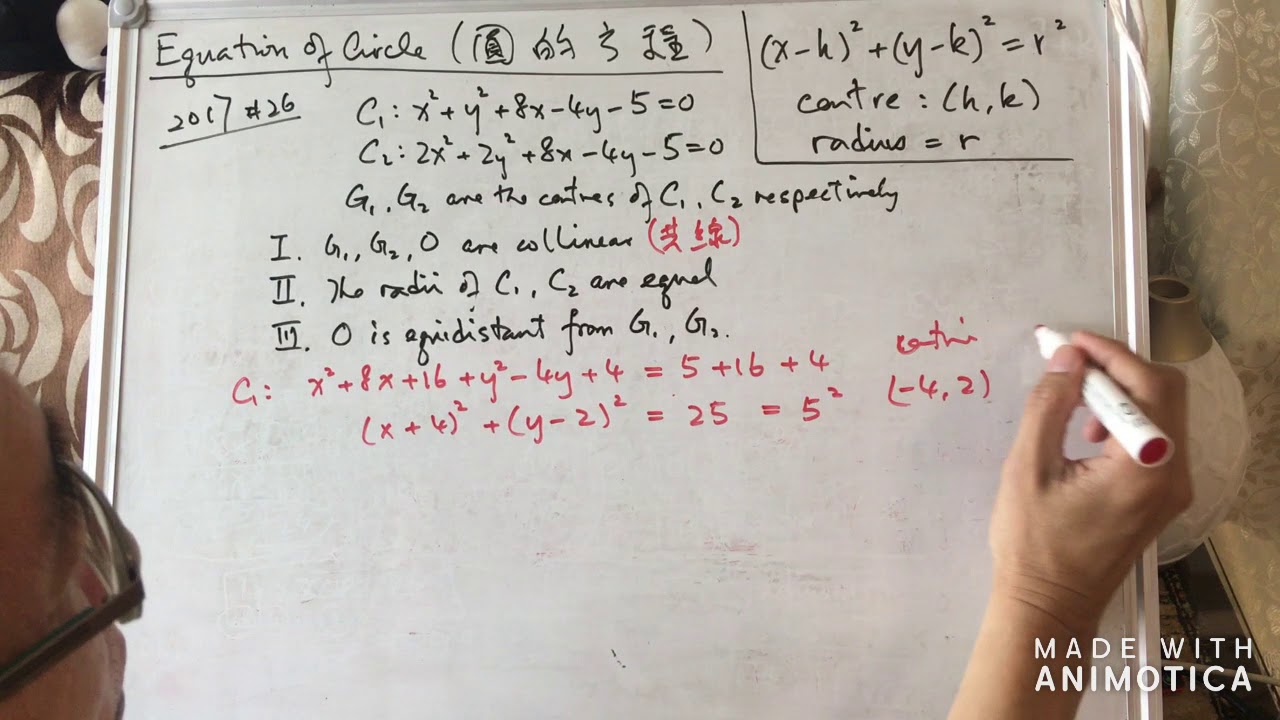 Equation of Circle (圓的方程)
(x-h)² + (y-k)² = r²
centre : (h, k)
radius = r
2017 #26
C₁ : x² + y² + 8x - 4y - 5 = 0
C₂ : 2x² + 2y² + 8x - 4y - 5 = 0
G₁, G₂ are the centres of C₁, C₂ respectively
I. G₁, G₂, O are collinear (共線)
II. The radii of C₁, C₂ are equal
III. O is equidistant from G₁, G₂.
C₁ : x² + 8x + 16 + y² - 4y + 4 = 5 + 16 + 4
(x + 4)² + (y - 2)² = 25 = 5²
centre
(-4, 2)
MADE WITH
ANIMOTICA